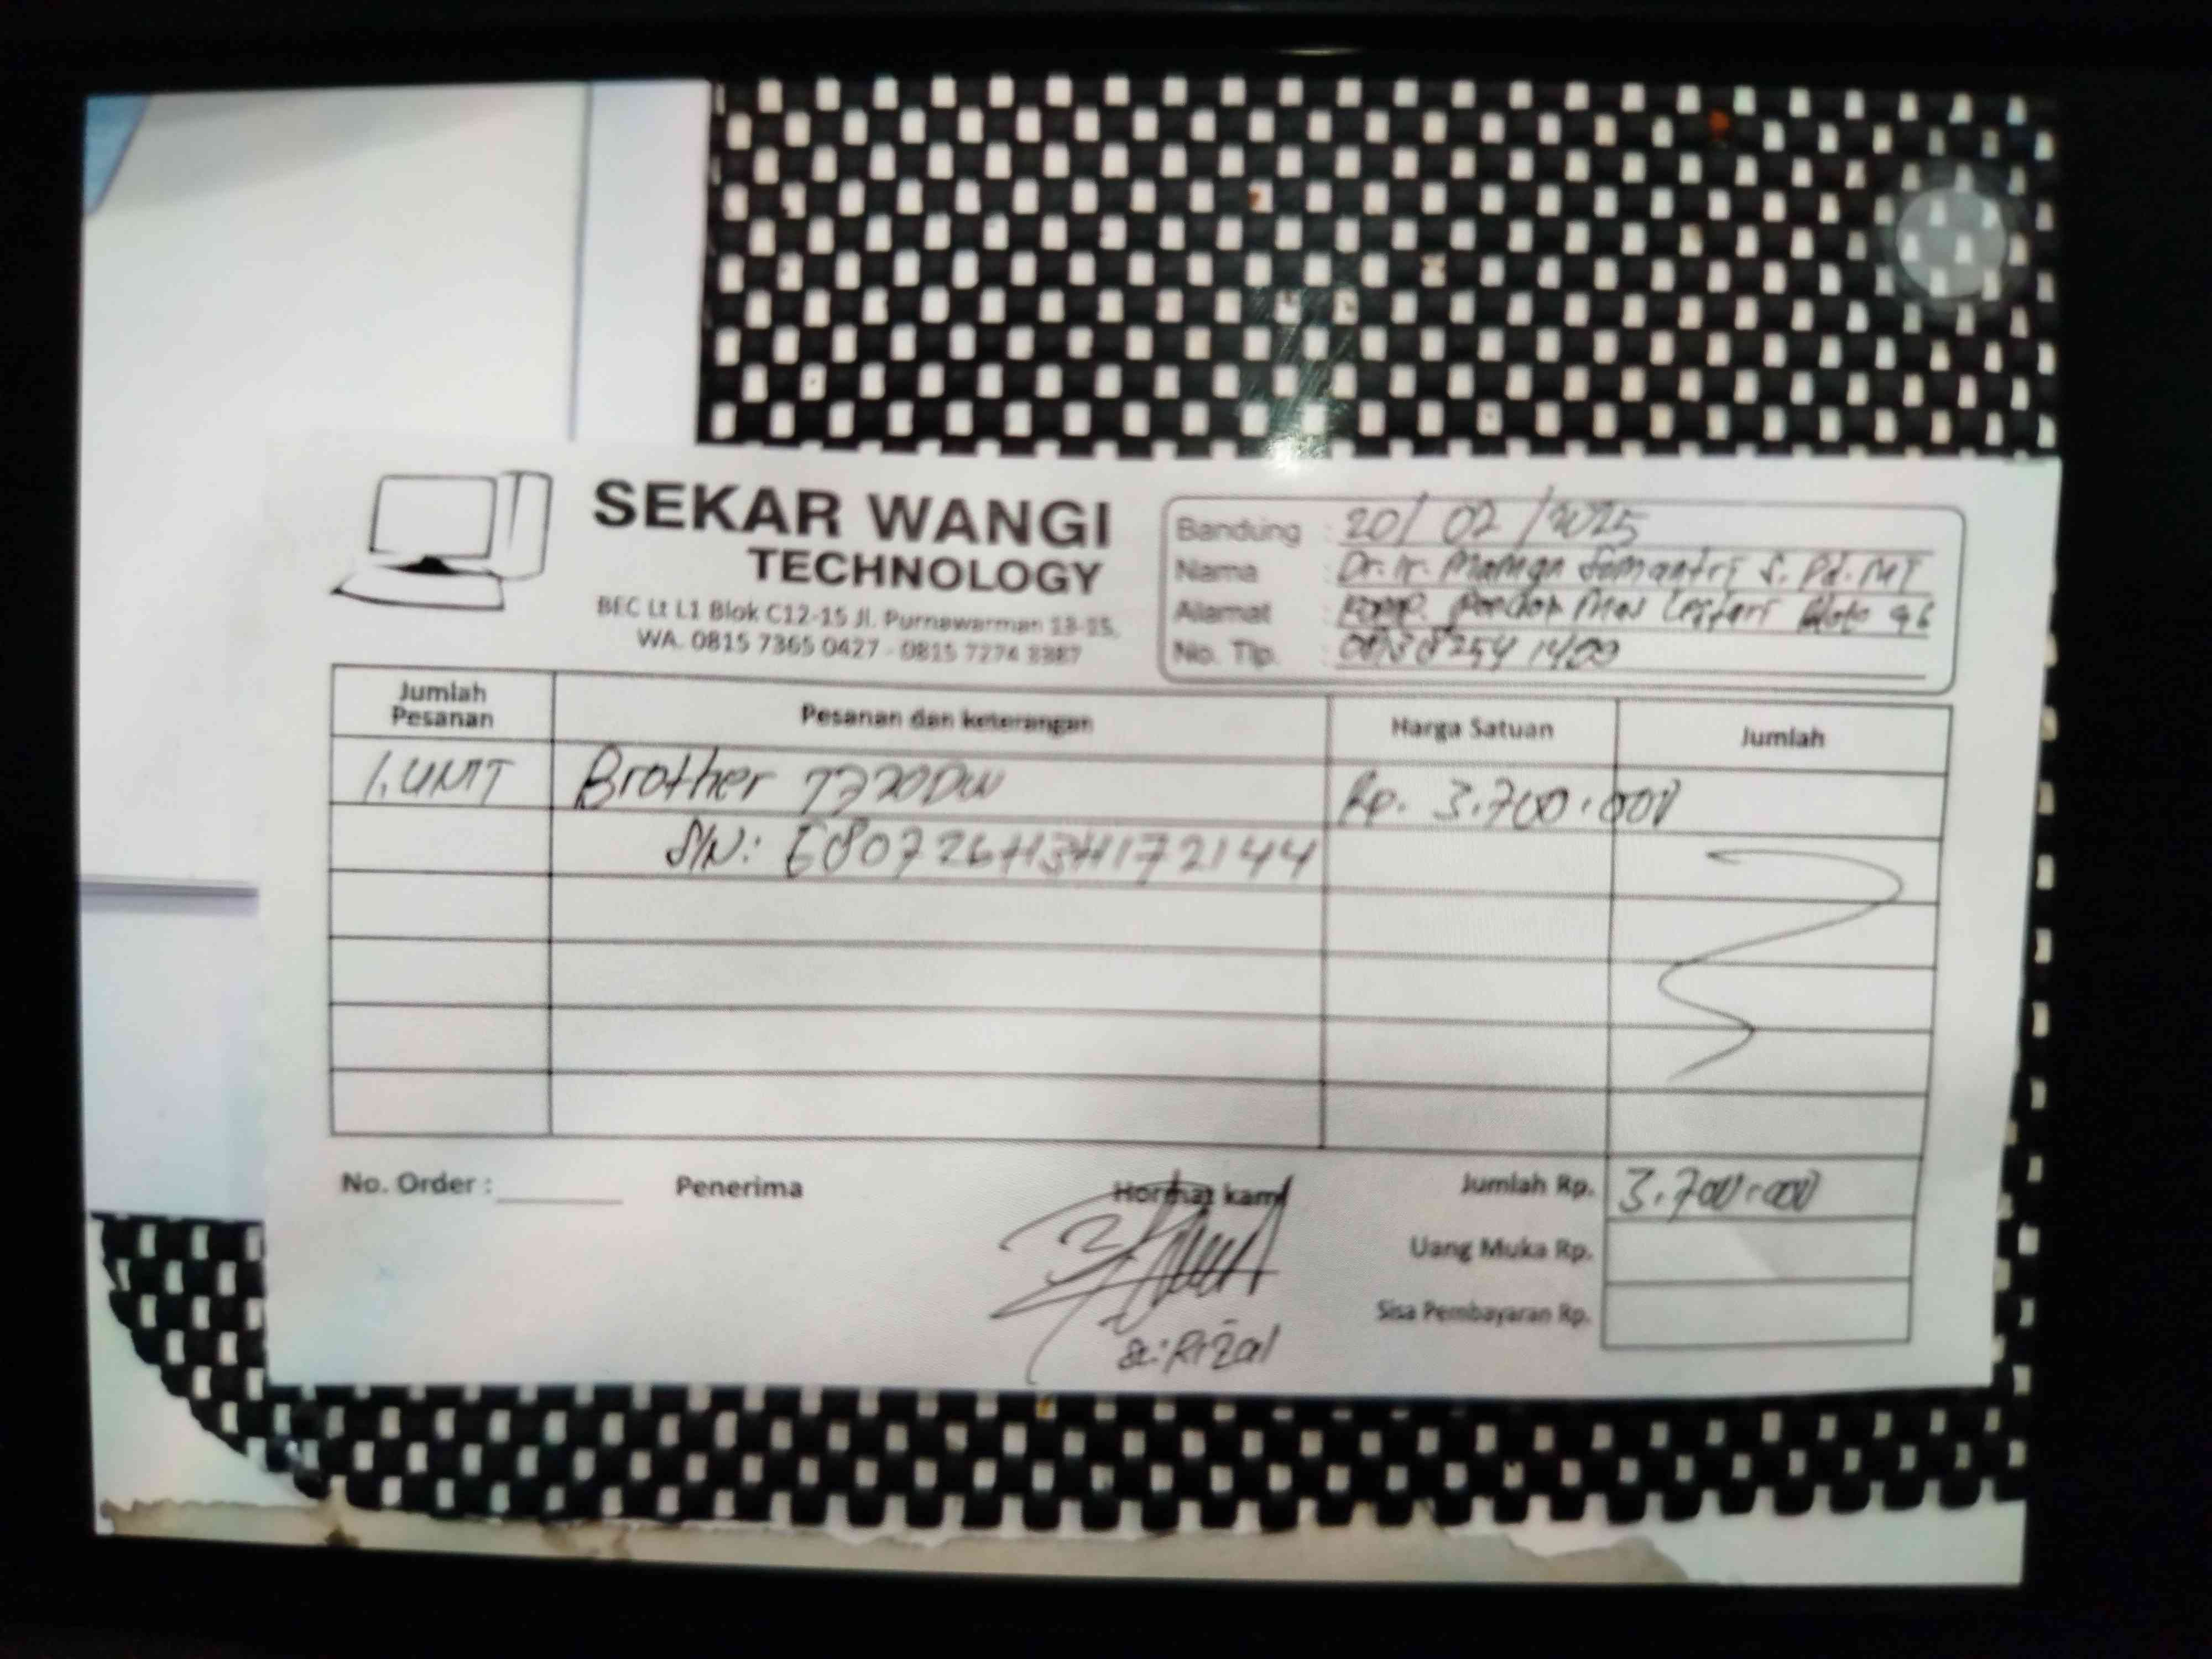 SEKAR WANGI
TECHNOLOGY
BEC Lt L1 Blok C12-15 Jl. Purnawarman 13-15,
WA. 0815 7365 0427 - 0815 7274 3387
Bandung : 20/ 02 /2025
Nama : Dr. Ir. Maman Somantri S. Pd. MT
Alamat : Komp. Pondok Mas Lestari
No. Tlp. :
Jumlah Pesanan Pesanan dan keterangan Harga Satuan Jumlah
1. UNIT Brother 7720DW Rp. 3.700.000
S/N: E80726H3H172144
No. Order : Penerima Hormat kami Jumlah Rp. 3.700.000
Uang Muka Rp.
Sisa Pembayaran Rp.
Rizal